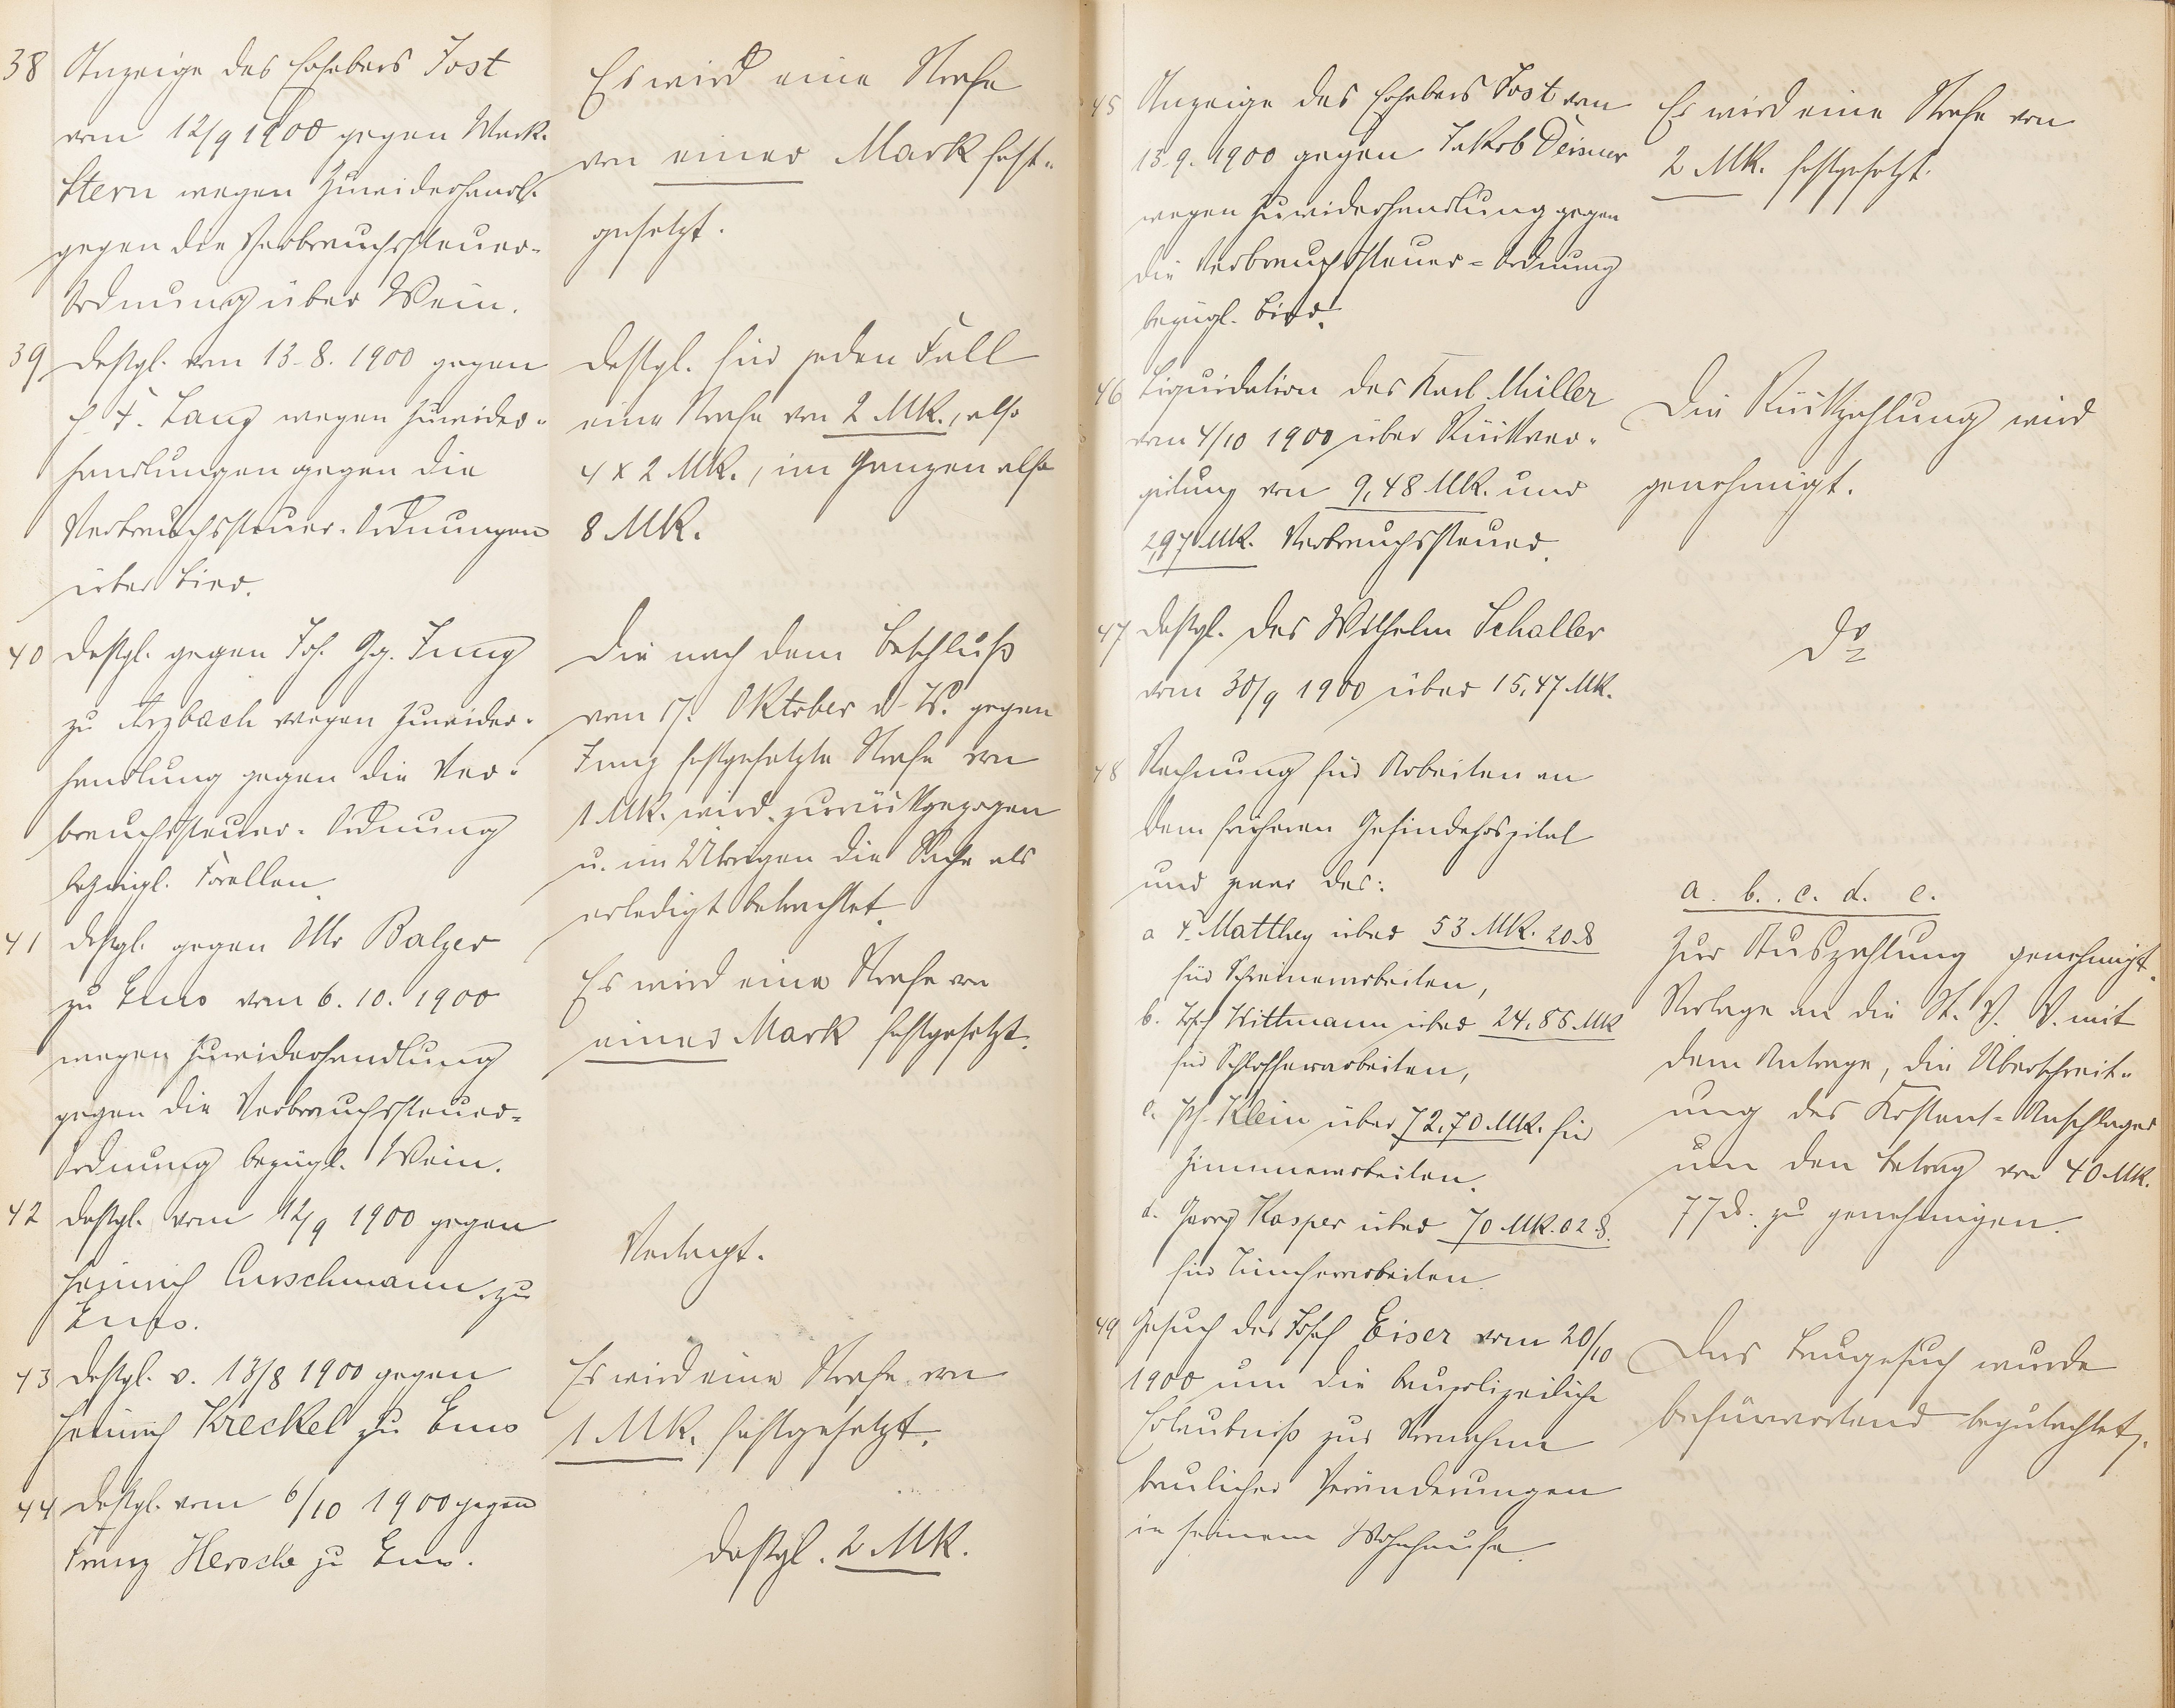 38 Anzeige des Erhebers Jost
vom 12/9 1900 gegen Mark.
Stern wegen Zuwiderhandl.
gegen die Verbrauchssteuer-
Ordnung über Wein.
Es wird eine Strafe
von einer Mark fest-
gesetzt.
39 Desgl. vom 13.8.1900 gegen
F. Lang wegen Zuwider-
handlungen gegen die
Verbrauchssteuer-Ordnungen
über Bier.
Desgl. für jeden Fall
eine Strafe von 2 Mk., also
4 x 2 Mk., im Ganzen also
8 Mk.
40 Desgl. gegen Joh. Gg. Jung
zu Arzbach wegen Zuwider-
handlung gegen die Ver-
brauchssteuer-Ordnung
bezügl. Forellen.
Die nach dem Beschluß
vom 17. Oktober d. Js. gegen
Jung festgesetzte Strafe von
1 Mk. wird zurückgezogen
u. im Übrigen die Sache als
erledigt betrachtet.
41 Desgl. gegen Otto Balzer
zu Ems vom 6.10.1900
wegen Zuwiderhandlung
gegen die Verbrauchssteuer-
Ordnung bezügl. Wein.
Es wird eine Strafe von
einer Mark festgesetzt.
42 Desgl. vom 12/9 1900 gegen
Heinrich Curschmann zu
Ems.
Vertagt.
43 Desgl. v. 13/8 1900 gegen
Heinrich Kreckel zu Ems
Es wird eine Strafe von
1 Mk. festgesetzt.
44 Desgl. vom 6/10 1900 gegen
Franz Hersche zu Ems.
Desgl. 2 Mk.
45 Anzeige des Erhebers Jost vom
13.9.1900 gegen Jakob Deisner
wegen Zuwiderhandlung gegen
die Verbrauchssteuer-Ordnung
bezügl. Bier.
Es wird eine Strafe von
2 Mk. festgesetzt.
46 Liquidation des Karl Müller
vom 4/10 1900 über Rückver-
gütung von 9,48 Mk. und
2,97 Mk. Verbrauchssteuer.
Die Rückzahlung wird
genehmigt.
47 Desgl. des Wilhelm Schaller
vom 30/9 1900 über 15,47 Mk.
do
48 Rechnung für Arbeiten an
dem früheren Gesindehospital
und zwar des:
a F. Matthey über 53 Mk. 20 ₰
für Schreinerarbeiten,
b. Josef Wittmann über 24,85 Mk
für Schlosserarbeiten,
c. Klein über 72,70 Mk. für
Zimmerarbeiten.
d. Georg Kasper über 70 Mk. 02 ₰.
für Tüncherarbeiten.
a. b. c. d. e.
Zur Auszahlung genehmigt.
Vorlage an die St. V. V. mit
dem Antrage, die Überschreit-
ung des Kosten-Anschlages
um den Betrag von 40 Mk.
77 ₰. zu genehmigen.
49 Gesuch des Josef Eiser vom 20/10
1900 um die baupolizeiliche
Erlaubniß zur Vornahme
baulicher Veränderungen
in seinem Wohnhause.
Das Baugesuch wurde
befürwortend begutachtet.